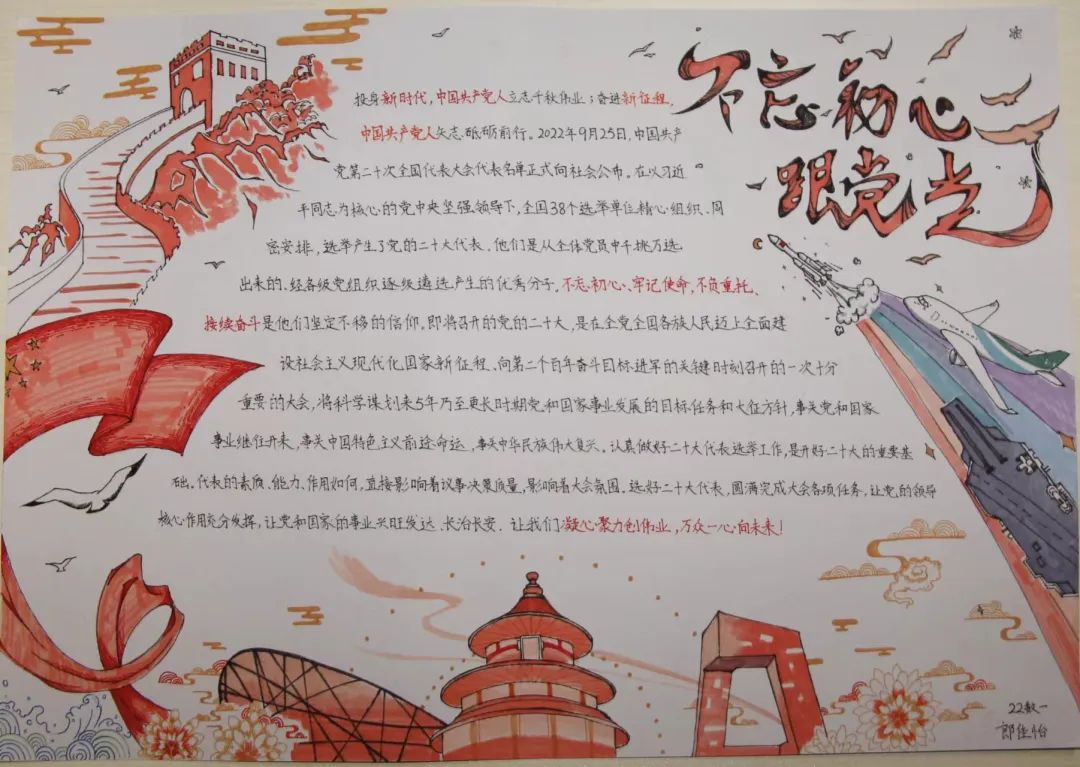 不忘初心
跟党走
投身新时代,中国共产党人立志千秋伟业;奋进新征程,
中国共产党人矢志砥砺前行。2022年9月25日,中国共产
党第二十次全国代表大会代表名单正式向社会公布。在以习近
平同志为核心的党中央坚强领导下,全国38个选举单位精心组织、周
密安排,选举产生了党的二十大代表、他们是从全体党员中千挑万选
出来的、经各级党组织逐级遴选产生的优秀分子。不忘初心、牢记使命,不负重托、
接续奋斗是他们坚定不移的信仰,即将召开的党的二十大,是在全党全国各族人民迈上全面建
设社会主义现代化国家新征程、向第二个百年奋斗目标进军的关键时刻召开的一次十分
重要的大会,将科学谋划未5年乃至更长时期党和国家事业发展的目标任务和大征方针,事关党和国家
事业继往开来,事关中国特色主义前途命运,事关中华民族伟大复兴。认真做好二十大代表选举工作,是开好二十大的重要基
础。代表的素质、能力、作用如何,直接影响着议事决策质量,影响着大会氛围。选好二十大代表,圆满完成大会各项任务,让党的领导
核心作用充分发挥,让党和国家的事业兴旺发达、长治长安。让我们凝心聚力创伟业,万众一心向未来!
22数一
郎佳怡